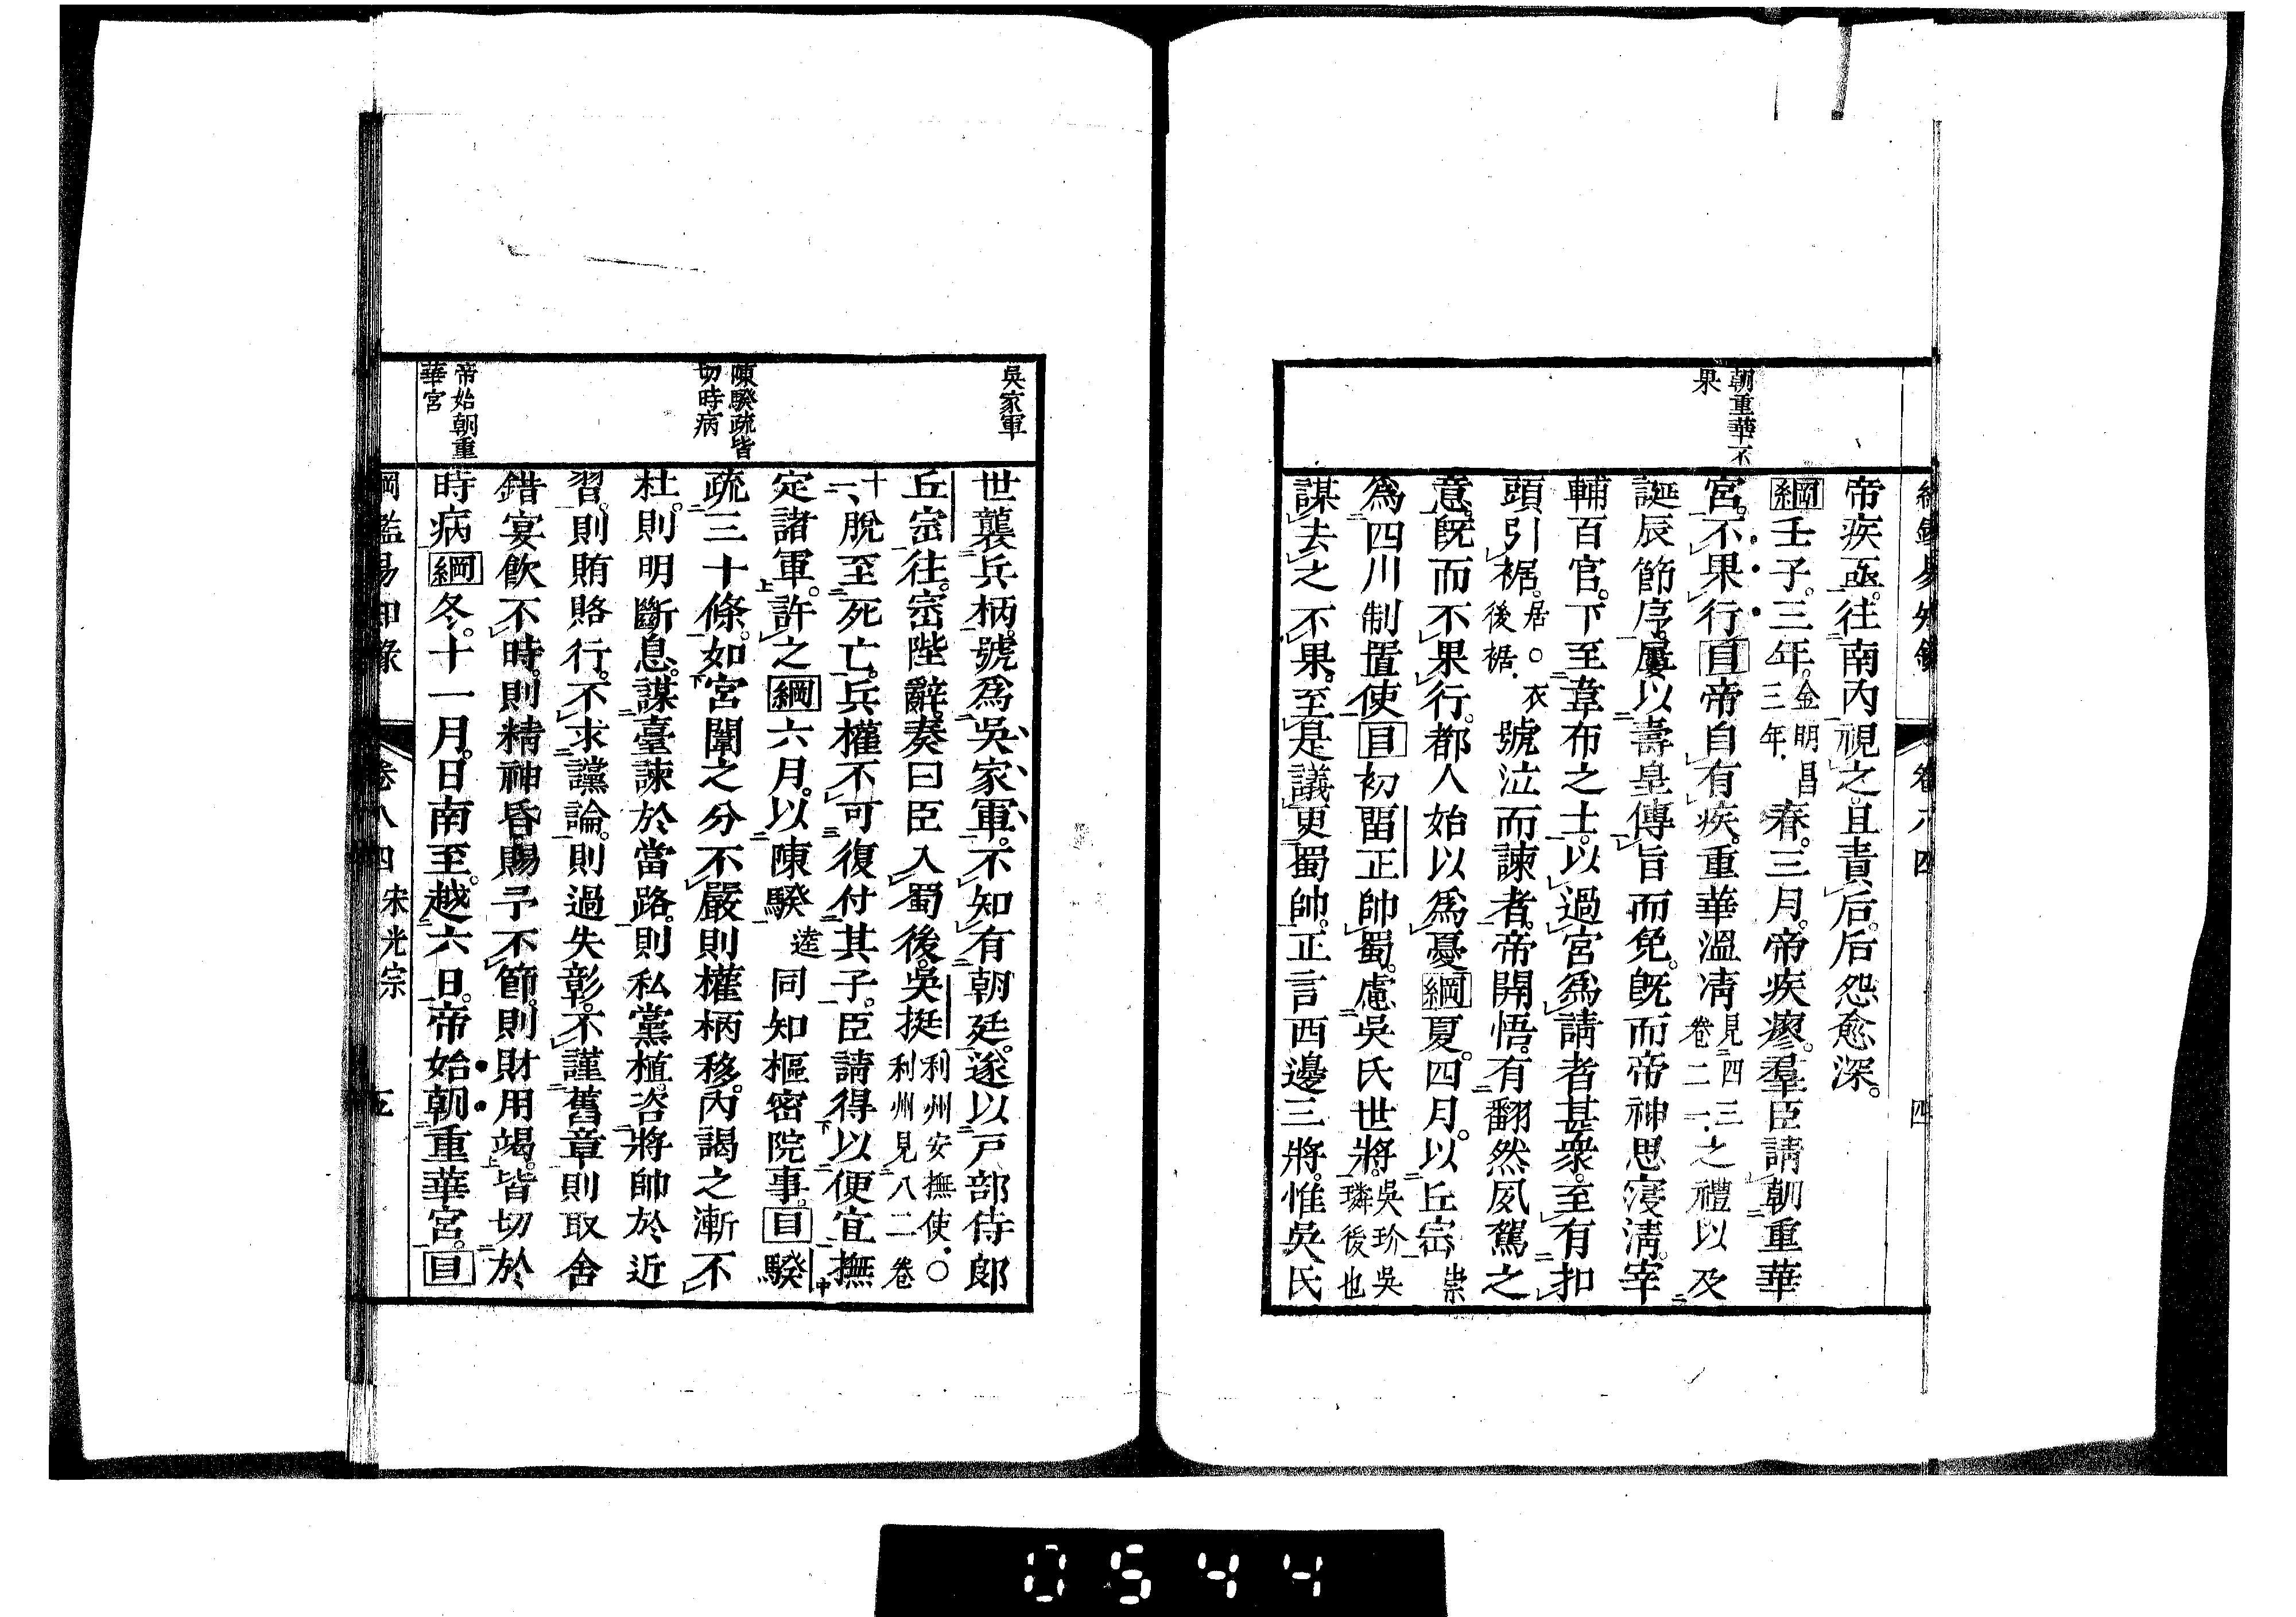 綱鑑易知錄 卷八四 四
朝重華不
果
帝疾亟。往南內視之。且責后。后怨愈深。
綱壬子。三年。金明昌三年。春。三月。帝疾瘳。羣臣請朝重華
宮。不果行目帝自有疾。重華溫凊見四三卷二一。之禮以及
誕辰節序。屢以壽皇傳旨而免。旣而帝神思寖淸。宰
輔百官。下至韋布之士。以過宮爲請者甚衆。至有扣
頭引裾。居。○衣後裾。號泣而諫者。帝開悟。有翻然夙駕之
意。旣而不果行。都人始以爲憂綱夏。四月。以丘崈崇
爲四川制置使目初留正帥蜀。慮吳氏世將。吳玠吳璘後也
謀去之不果。至是議更蜀帥。正言西邊三將。惟吳氏
吳家軍
陳騤疏皆
切時病
帝始朝重
華宮
世襲兵柄。號爲吳家軍。不知有朝廷。遂以戸部侍郎
丘崈往。崈陛辭。奏曰臣入蜀後。吳挺利州安撫使。○利州見八二卷
十一、脫至死亡。兵權不可復付其子。臣請得以便宜撫
定諸軍。許之綱六月。以陳騤逵同知樞密院事。目騤
疏三十條。如宮闈之分不嚴則權柄移。內謁之漸不
杜。則明斷息。謀臺諫於當路。則私黨植。咨將帥於近
習。則賄賂行。不求讜論。則過失彰。不謹舊章則取舍
錯宴飮不時。則精神昏。賜予不節。則財用竭。皆切於
時病綱冬。十一月。日南至。越六日。帝始朝重華宮。目
綱鑑易知錄 卷八四 宋光宗 五
0544